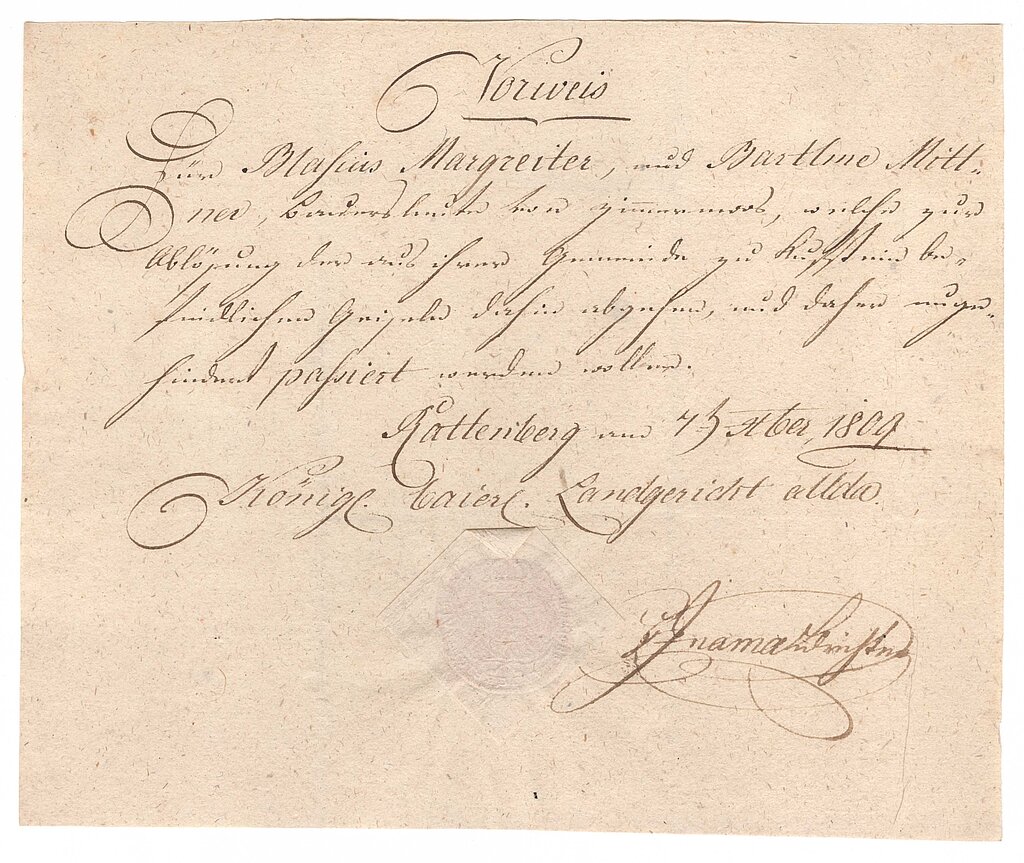 Vorweis
Für Blasius Margreiter, und Bartlme Mitt-
ner, Bauersleute von Zimmermoos, welche zur
Ablösung der aus ihrer Gemeinde zu Kuffstein be-
findlichen Geiseln dahin abgehen, und daher unge-
hindert passiert werden wollen.
Rattenberg am 7t Xber 1809
Königl. baier. Landgericht allda.
Inama Ldrichter